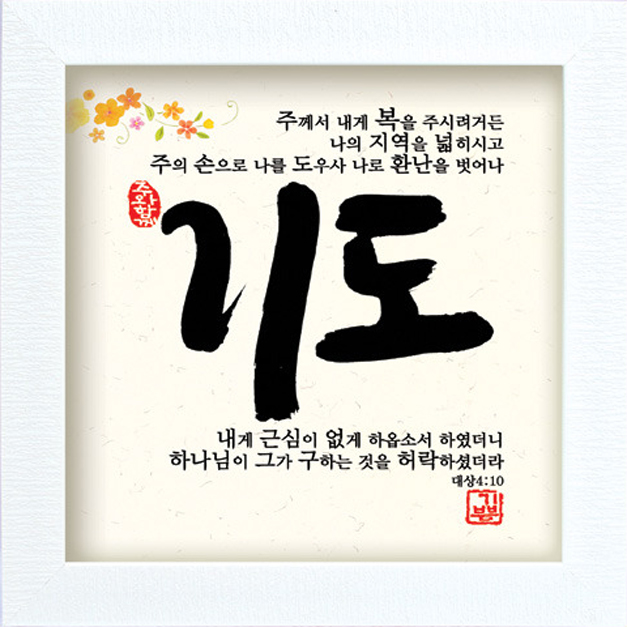 주께서 내게 복을 주시려거든
나의 지역을 넓히시고
주의 손으로 나를 도우사 나로 환난을 벗어나
주와함께
기도
내게 근심이 없게 하옵소서 하였더니
하나님이 그가 구하는 것을 허락하셨더라
대상4:10
기쁨